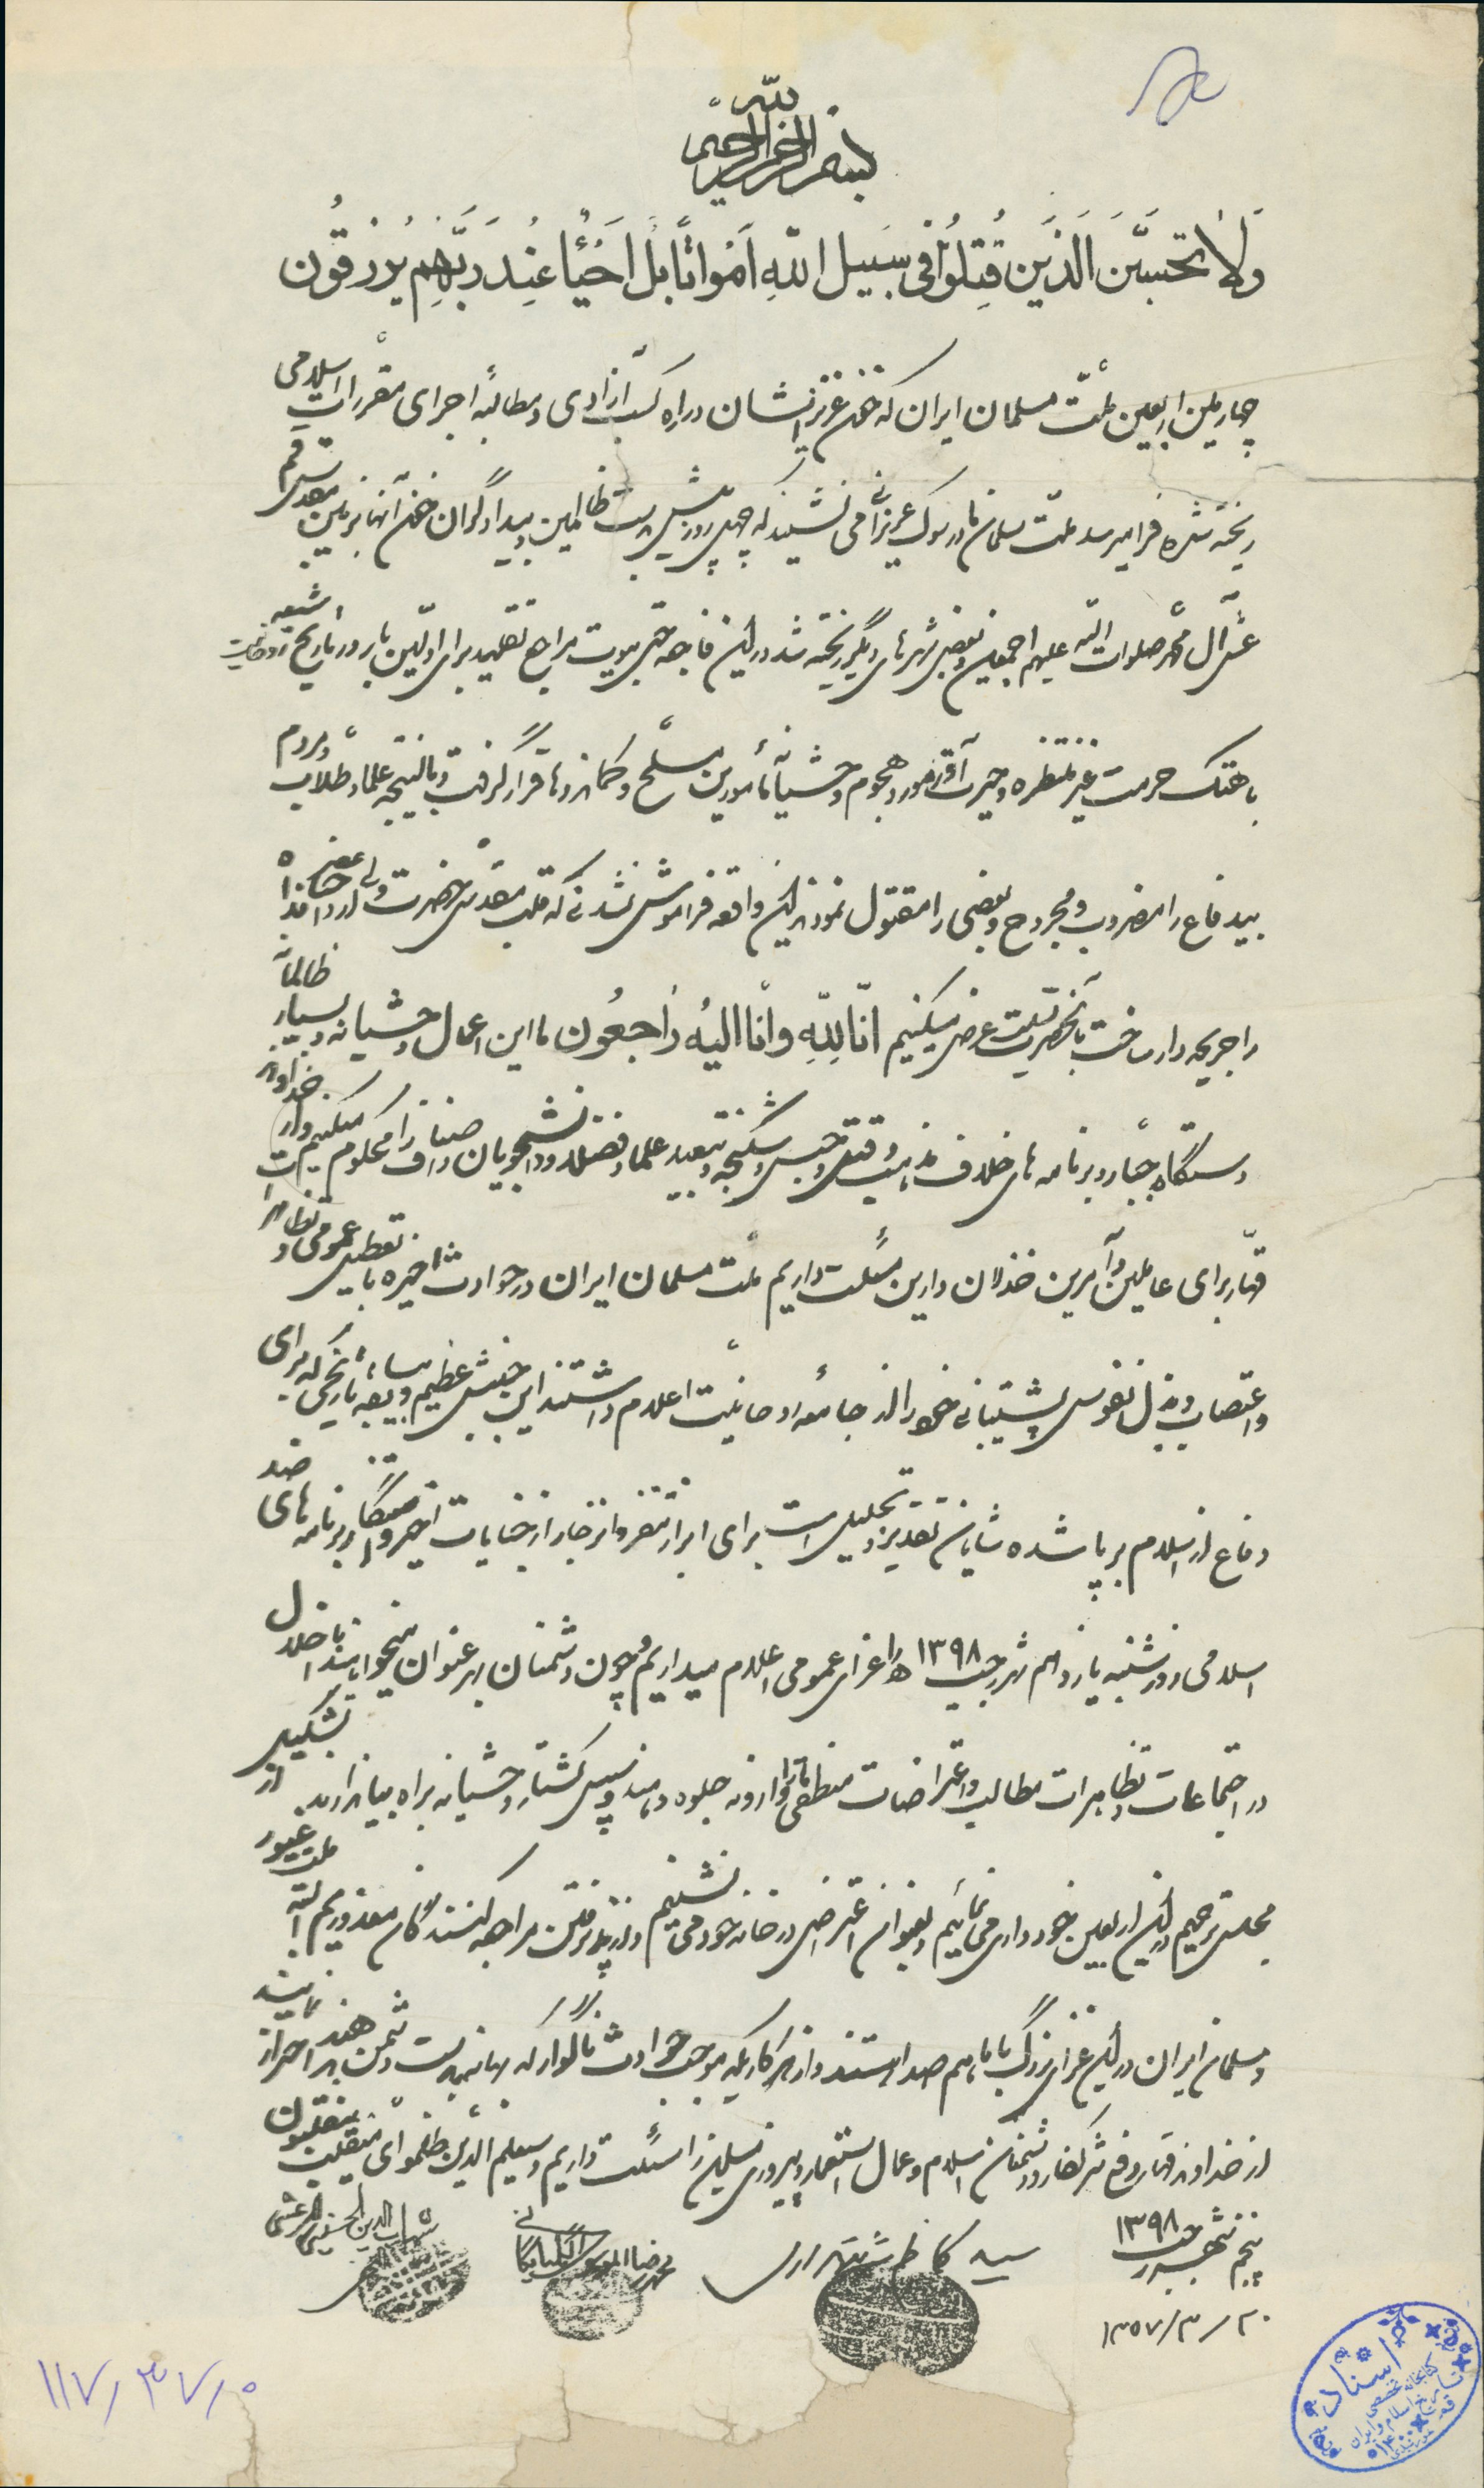 بسم الله الرحمن الرحیم
ولا تحسبن الذین قتلوا فی سبیل الله امواتا بل احیاء عند ربهم یرزقون
چهارمین اربعین ملت مسلمان ایران که خون عزیزانشان در راه کسب آزادی و مطالبهٔ اجرای مقررات اسلامی
ریخته شده فرا میرسد ملت مسلمان ما در سوک عزیزانی می نشیند که چهل روز پیش بدست ظالمین و بیدادگران خون آنها بر زمین مقدس قم
عش آل محمد صلوات الله علیهم اجمعین و بعضی شهرهای دیگر ریخته شد در این فاجعه حتی بیوت مراجع تقلید برای اولین بار در تاریخ شیعه و روحانیت
با هتک حرمت غیر منتظره و حیرت آور مورد هجوم وحشیانهٔ مأمورین مسلح و کماندوها قرار گرفت و بالنتیجه علماء و طلاب و مردم
بیدفاع را مضروب و مجروح و بعضی را مقتول نمودند این واقعه فراموش نشدنی که قلب مقدس حضرت ولی عصر ارواحنا فداه
را جریحه دار ساخت بآنحضرت تسلیت عرض میکنیم انا لله وانا الیه راجعون ما این اعمال وحشیانه و بسیار ظالمانه
دستگاه جبار و برنامه های خلاف مذهب و قتل و حبس و شکنجه و تبعید علماء و فضلاء و دانشجویان و اصناف را محکوم میکنیم و از خداوند
قهار برای عاملین و آمرین خذلان دارین مسئلت داریم ملت مسلمان ایران در حوادث اخیره با تعطیل عمومی و تظاهرات
و اعتصاب و بذل نفوس پشتیبانی خود را از جامعه روحانیت اعلام داشتند این جنبش عظیم و بیسابقه تاریخی که برای
دفاع از اسلام برپا شده شایان تقدیر و تجلیل است برای ابراز تنفر و انزجار از جنایات اخیر دستگاه و برنامه های ضد
اسلامی روز شنبه یازدهم شهر رجب ۱۳۹۸ را عزای عمومی اعلام میداریم و چون دشمنان بهر عنوان میخواهند با اخلال
در اجتماعات و تظاهرات مطالب و اعتراضات منطقی ما را وارونه جلوه دهند و سپس کشتار وحشیانه براه بیاندازند از تشکیل
مجلس ترحیم در این اربعین خودداری می نمائیم و بعنوان اعتراض در خانه خود می نشینیم و از پذیرفتن مراجعه کنندگان معذوریم البته ملت غیور
و مسلمان ایران در این عزای بزرگ با ما هم صدا هستند و از هر کاریکه موجب حوادث ناگوار که بهانه بدست دشمن بدهد احتراز نمایند
از خداوند قهار دفع شر کفار و دشمنان اسلام و عمال استعمار و پیروزی مسلمین را مسئلت داریم وسیعلم الذین ظلموا ای منقلب ینقلبون
پنجم شهر رجب ۱۳۹۸
سید کاظم شریعتمداری
محمدرضا الموسوی الگلپایگانی
شهاب الدین الحسینی المرعشی
۱۳۵۷/۳/۲۰
۱۱۷/۳۷/۰
اسناد
کتابخانه تخصصی
تاریخ اسلام و ایران